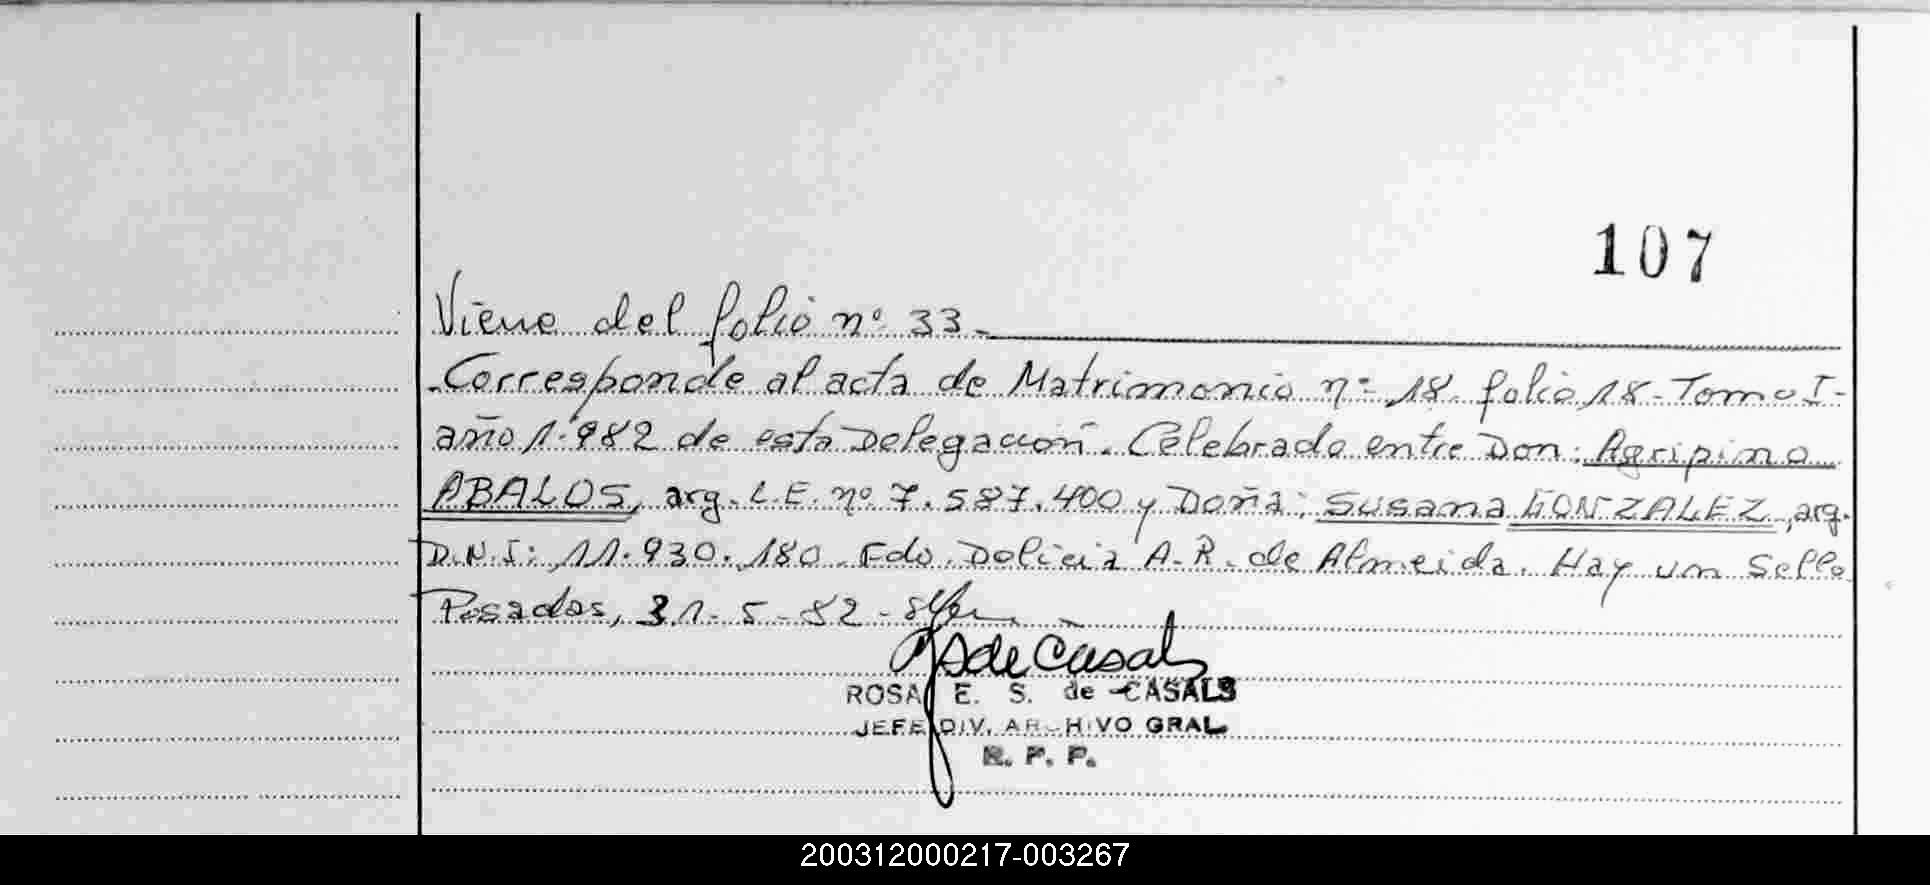 107
Viene del folio nº 33.
Corresponde al acta de Matrimonio nº 18. folio 18. Tomo I-
año 1.982 de esta Delegación. Celebrado entre Don: Agripino
ABALOS, arg. L.E. nº 7.587.400 y Doña: Susana GONZALEZ, arg.
D.N.I: 11.930.180. Fdo. Delicia A.R. de Almeida. Hay un Sello
Posadas, 31-5-82-
RSde Casals
ROSA E. S. de CASALS
JEFE DIV. ARCHIVO GRAL.
R. P. P.
200312000217-003267